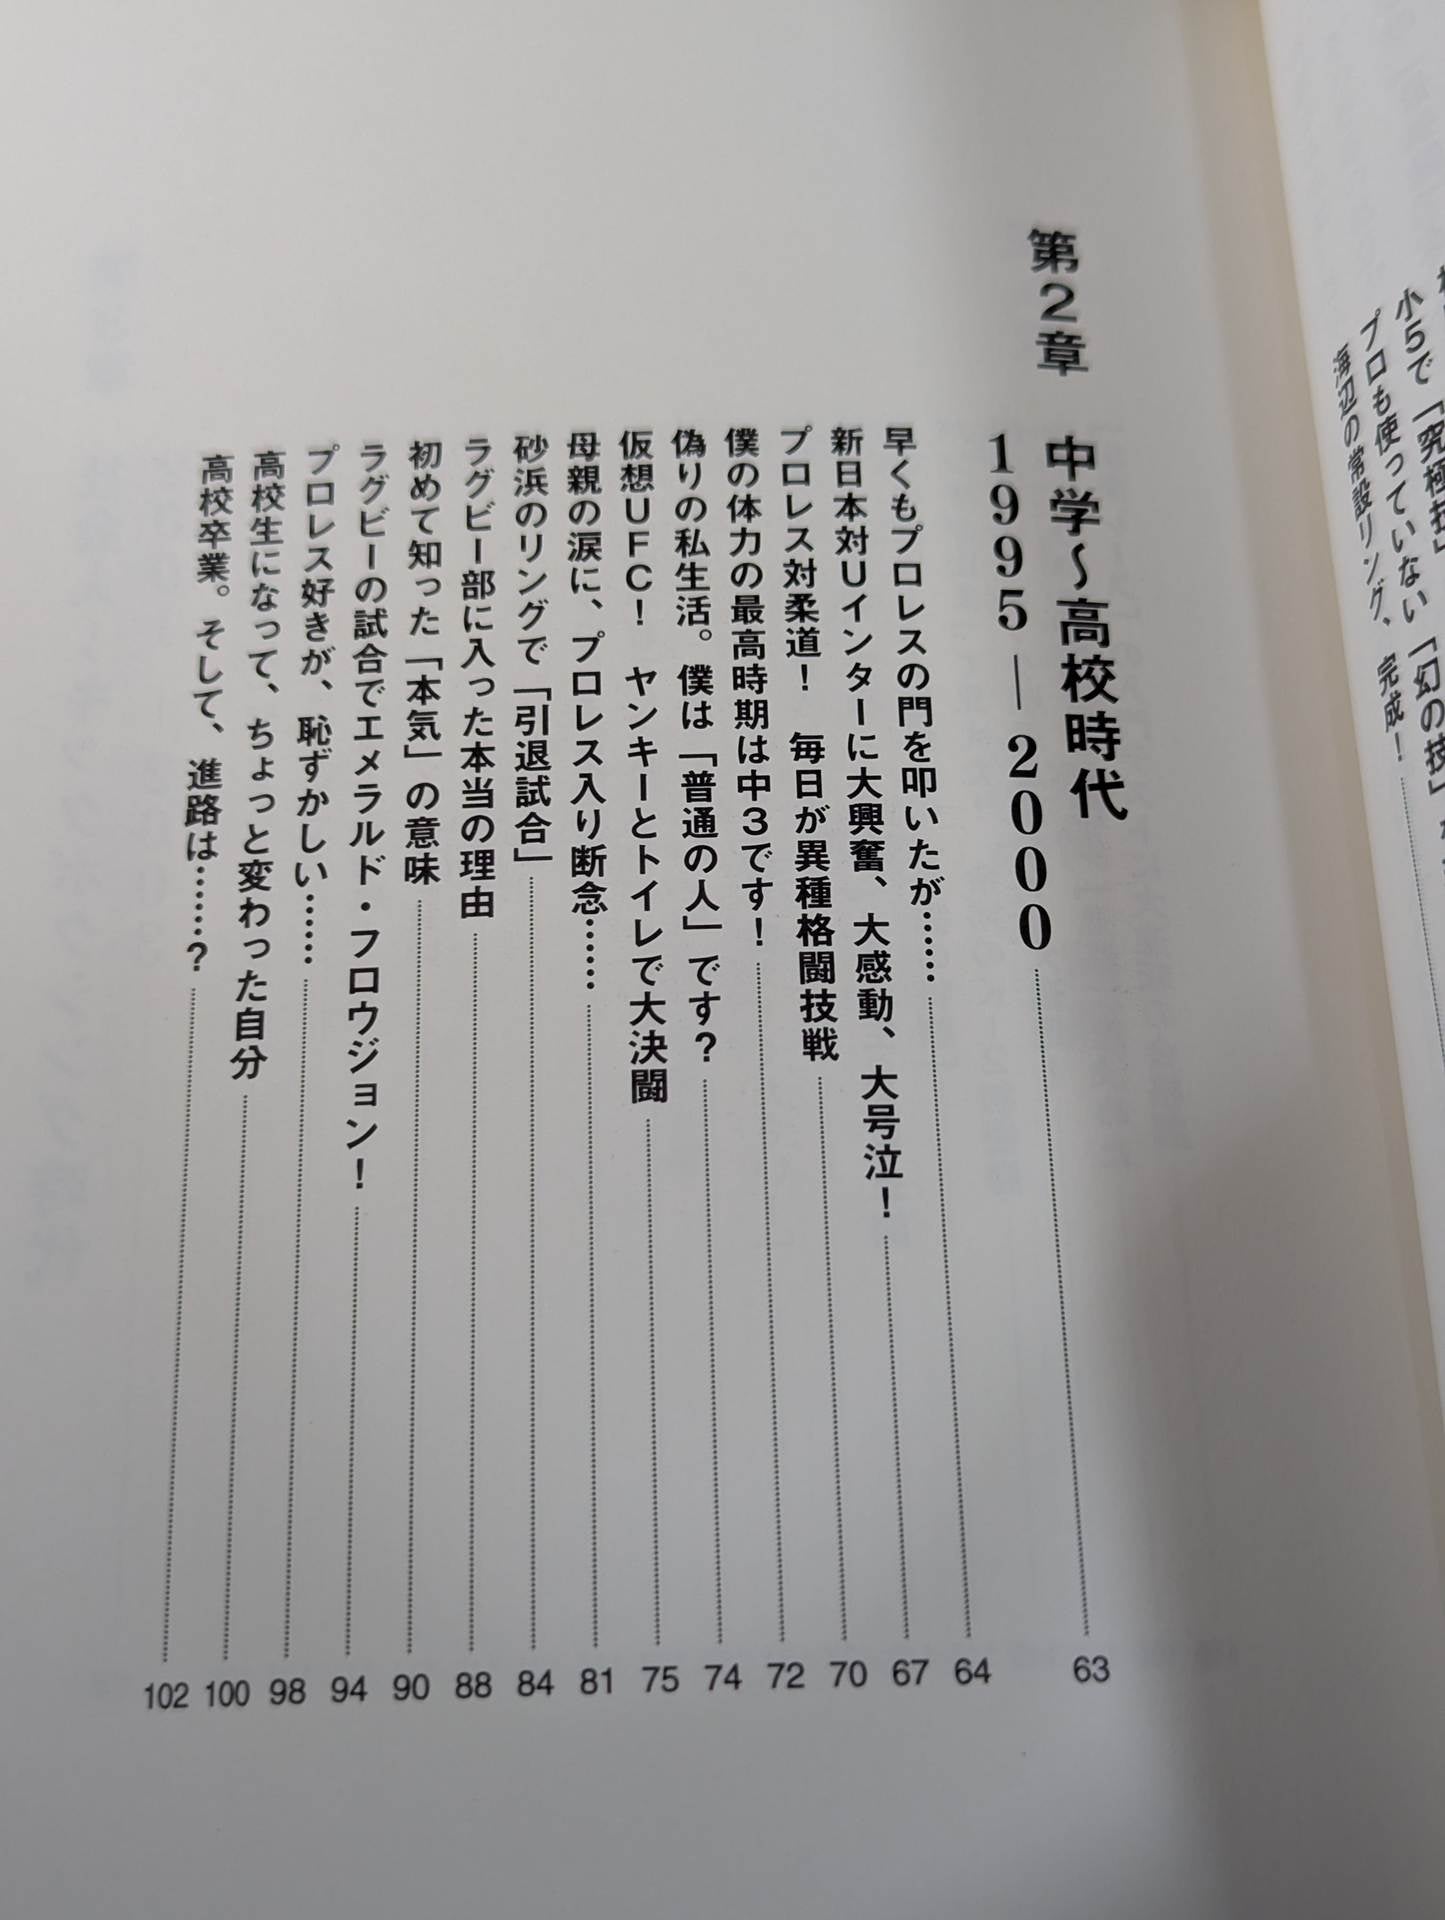 小5で「究極技」
プロも使っていない「幻の技」
海辺の常設リング、完成！
第2章 中学〜高校時代
1995―2000 63
早くもプロレスの門を叩いたが…… 64
新日本対Uインターに大興奮、大感動、大号泣！ 67
プロレス対柔道！ 毎日が異種格闘技戦 70
僕の体力の最高時期は中3です！ 72
偽りの私生活。僕は「普通の人」です？ 74
仮想UFC！ ヤンキーとトイレで大決闘 75
母親の涙に、プロレス入り断念…… 81
砂浜のリングで「引退試合」 84
ラグビー部に入った本当の理由 88
初めて知った「本気」の意味 90
ラグビーの試合でエメラルド・フロウジョン！ 94
プロレス好きが、恥ずかしい…… 98
高校生になって、ちょっと変わった自分 100
高校卒業。そして、進路は……？ 102